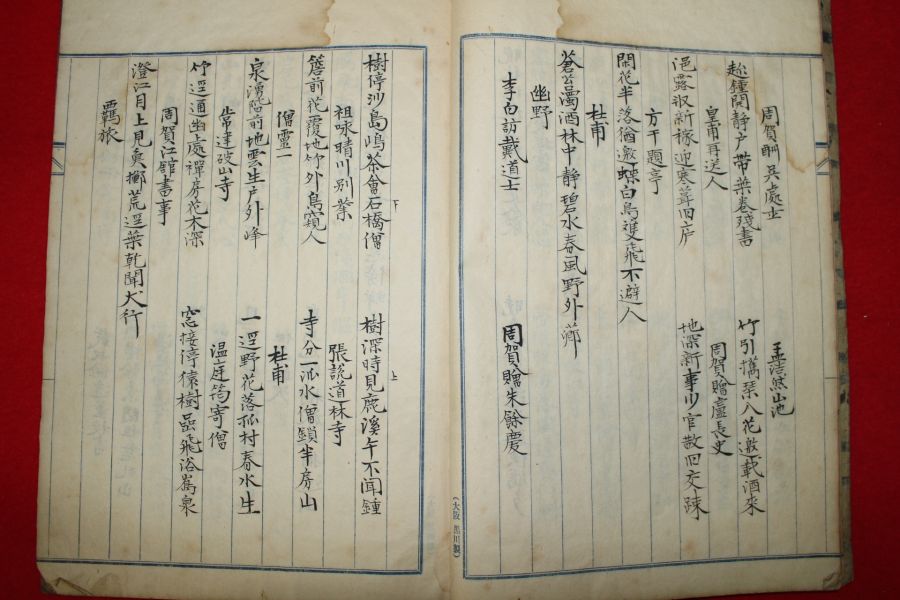 周賀酬吳處士
孟浩然山池
趂鍾開静户帯葉卷殘書
竹引攜琴入花邀載酒來
皇甫再送人
周賀贈盧長史
浥露収新稼迎寒葺旧庐
地深新事少官散旧交踈
方干題亭
閑花半落猶邀蝶白鳥雙飛不避人
杜甫
蒼苔濁酒林中静碧水春風野外
幽野
李白訪戴道士
周賀贈朱餘慶
(大阪 黑川製)
樹停沙島嶋茶會石橋僧
下
樹深時見鹿溪午不闻鍾
上
祖咏晴川別業
張說道林寺
簷前花覆地竹外鳥窺人
寺分一派水僧鎖半房山
僧靈一
杜甫
泉湧階前地雲生户外峰
一逕野花落孤村春水生
常建破山寺
温庭筠寄僧
竹逕通幽處禪房花木深
窓接停猿樹嵓飛浴鶴泉
周賀江館書事
澄江月上見魚擲荒逕葉乾聞犬行
羈旅